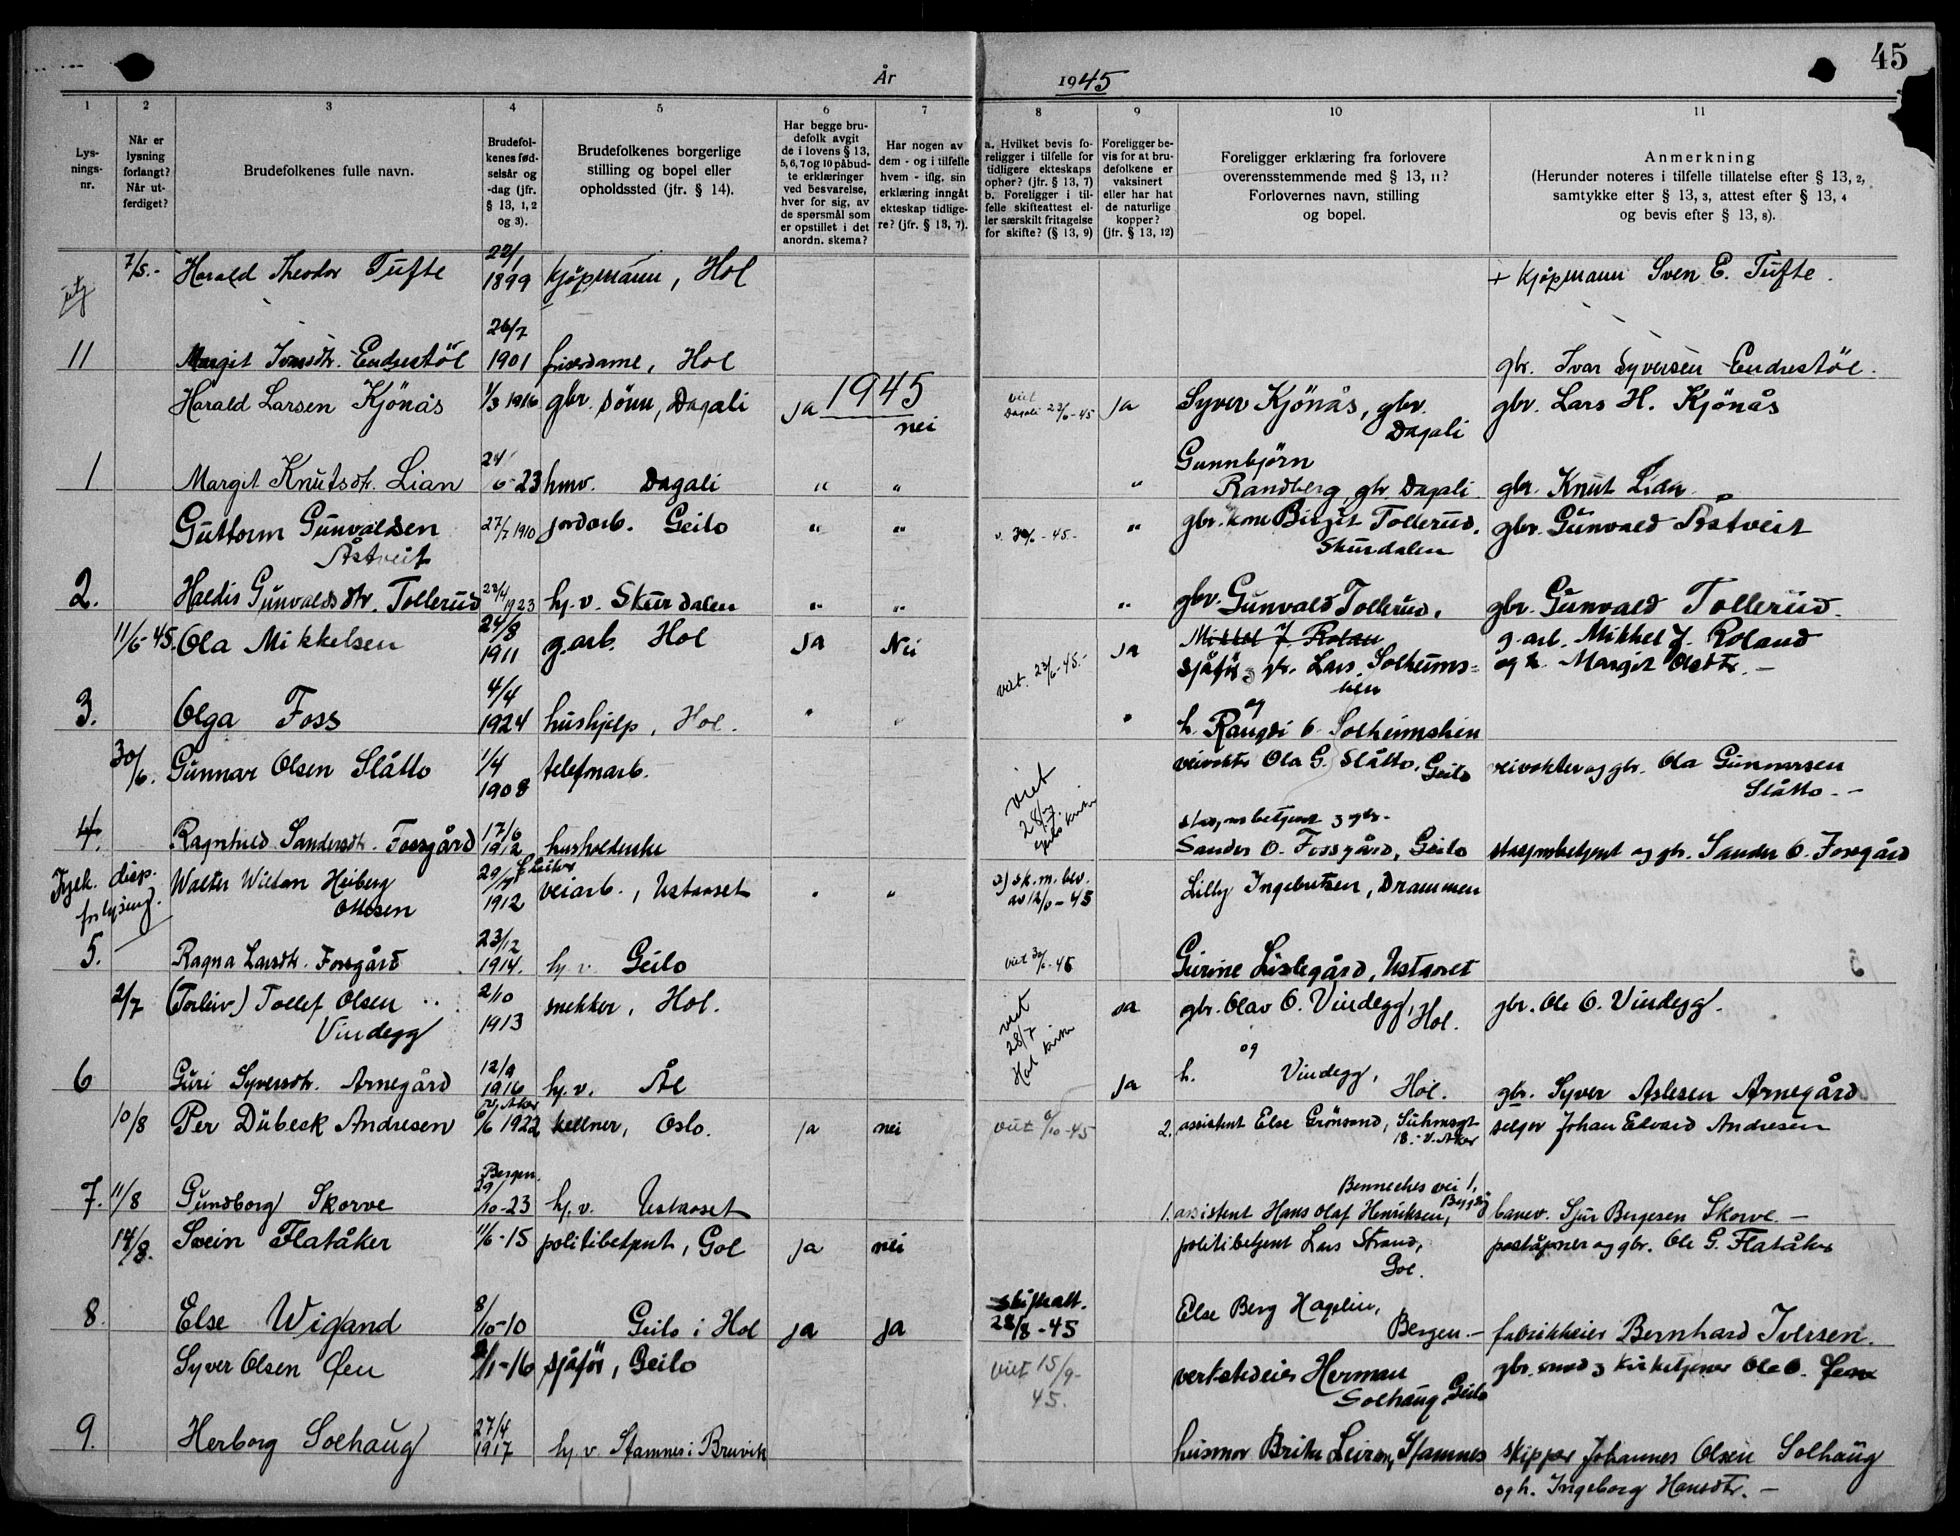 45
År 1945
1 2 3 4 5 6 7 8 9 10 11
Lys-
nings-
nr.
Når er
lysning
forlangt?
Når ut-
ferdiget?
Brudefolkenes fulle navn.
Brudefol-
kenes fød-
selsår og
-dag (jfr.
§ 13, 1, 2
og 3).
Brudefolkenes borgerlige
stilling og bopel eller
opholdssted (jfr. § 14).
Har begge bru-
defolk avgit
de i lovens § 13,
5, 6, 7 og 10 påbud-
te erklæringer
ved besvarelse,
hver for sig, av
de spørsmål som
er opstillet i det
anordn. skema?
Har nogen av
dem - og i tilfelle
hvem - iflg. sin
erklæring inngått
ekteskap tidlige-
re? (jfr. § 13, 7).
a. Hvilket bevis fo-
religger i tilfelle for
tidligere ekteskaps
ophør? (jfr. § 13, 7)
b. Foreligger i til-
felle skifteattest el-
ler særskilt fritagelse
for skifte? (§ 13, 9)
Foreligger be-
vis for at bru-
defolkene er
vaksinert
eller har hat
de naturlige
kopper?
(jfr. § 13, 12)
Foreligger erklæring fra forlovere
overensstemmende med § 13, 11?
Forlovernes navn, stilling
og bopel.
Anmerkning
(Herunder noteres i tilfelle tillatelse efter § 13, 2,
samtykke efter § 13, 3, attest efter § 13, 4
og bevis efter § 13, 8).
7/5.- Harald Theodor Tufte 22/1 1899 kjøpmann, Hol + kjøpmann Sven E. Tufte.
11 Margit Ivarsdtr. Endrestöl 26/7 1901 frisørdame, Hol gbr. Ivar Syversen Endrestöl.
1945
Harald Larsen Kjönås 1/3 1916 gbr. sönn, Dagali ja nei viet Dagali 23/6-45 ja Syver Kjönås, gbr. Dagali gbr. Lars H. Kjönås
1 Margit Knutsdtr. Lian 24/6-23 hmv. Dagali " " " Gunnbjörn Randberg, gbr Dagali gbr. Knut Lian
Guttorm Gunvaldsen Åstveit 27/7 1910 jordarb. Geilo " " v. 30/6-45.- " gbr. kone Birgit Tollerud, Skurdalen gbr. Gunvald Åstveit
2. Haldis Gunvaldsdtr. Tollerud 23/4 1923 hj.v. Skurdalen " " " gbr. Gunvald Tollerud. gbr. Gunvald Tollerud.
11/6-45. Ola Mikkelsen 24/8 1911 g.arb. Hol ja Nei viet. 23/6-45.- ja Mikkel J. Roland
sjåför gbr. Lars Solheims=lien g.arb. Mikkel J. Roland
og h. Margit Olsdtr. -
3. Olga Foss 4/4 1924 hushjelp, Hol. " " " og
h. Rangdi O. Solheimslien
30/6. Gunnar Olsen Slåtto 1/4 1908 telefonarb. viet 28/7. veivokter Ola G. Slåtto, Geilo veivokter og gbr. Ola Gunnarsen Slåtto. -
4. Ragnhild Sandersdtr. Fossgård 17/6 1912 husholderske stasjonsbetjent gbr.
Sander O. Fossgård, Geilo stasjonsbetjent og gbr. Sander O. Fossgård
Fylk. disp. Walter Heiberg Ottesen 29/ 1912 veiarb., Ustaoset " " a) sk.m. bev. av 12/6-45 Lilly Ingebretsen, Drammen
5. Ragna Larsdtr. Fossgård 23/12 1914. hj v. Geilo viet 30/6-45 Gurine Lislegård, Ustaoset
2/7 (Torleiv) Tollef Olsen Vindegg 2/10 1913 snekker, Hol. viet 28/7 Hol kirke ja gbr. Olav O. Vindegg, Hol. gbr. Ole O. Vindegg.
6 Guri Syversdtr. Arnegård 12/9 1916 hj.v. Ål ja og
h. Vindegg, Hol. gbr. Syver Aslesen Arnegård
10/8 Per Dübeck Andresen 6/6 1922 kellner, Oslo. ja nei viet 6/10-45 2. assistent Else Grönsund, Suhmsgt 18.- V. Aker selger Johan Edvard Andresen
7. 11/8 Gundborg Skorve Bergen. 29/10-23 hj.v. Ustaoset Benneches vei 1, Bygdøy
1. assistent Hans Olaf Henriksen, banev. Sjur Bergesen Skorve. -
14/8. Svein Flatåker 11/6-15 politibetjent, Gol ja nei politibetjent Lars Strand, Gol. poståpner og gbr. Ole G. Flatåker
8. Else Wigand 8/10-10 Geilo i Hol ja ja skifteatt. 28/8-45 Else Berg Hagelin, Bergen. - fabrikkeier Bernhard Iversen.
Syver Olsen Øen 2/11-16 sjåför, Geilo viet 15/9-45. verkstedeier Herman Solhaug, Geilo gbr. smed og kirketjener Ole O. Øen
9. Herborg Solhaug 27/4 1917 hj.v Stamnes i Bruvik husmor Brita Leiro, Stamnes skipper Johannes Olsen Solhaug
og h. Ingeborg Hansdtr. -